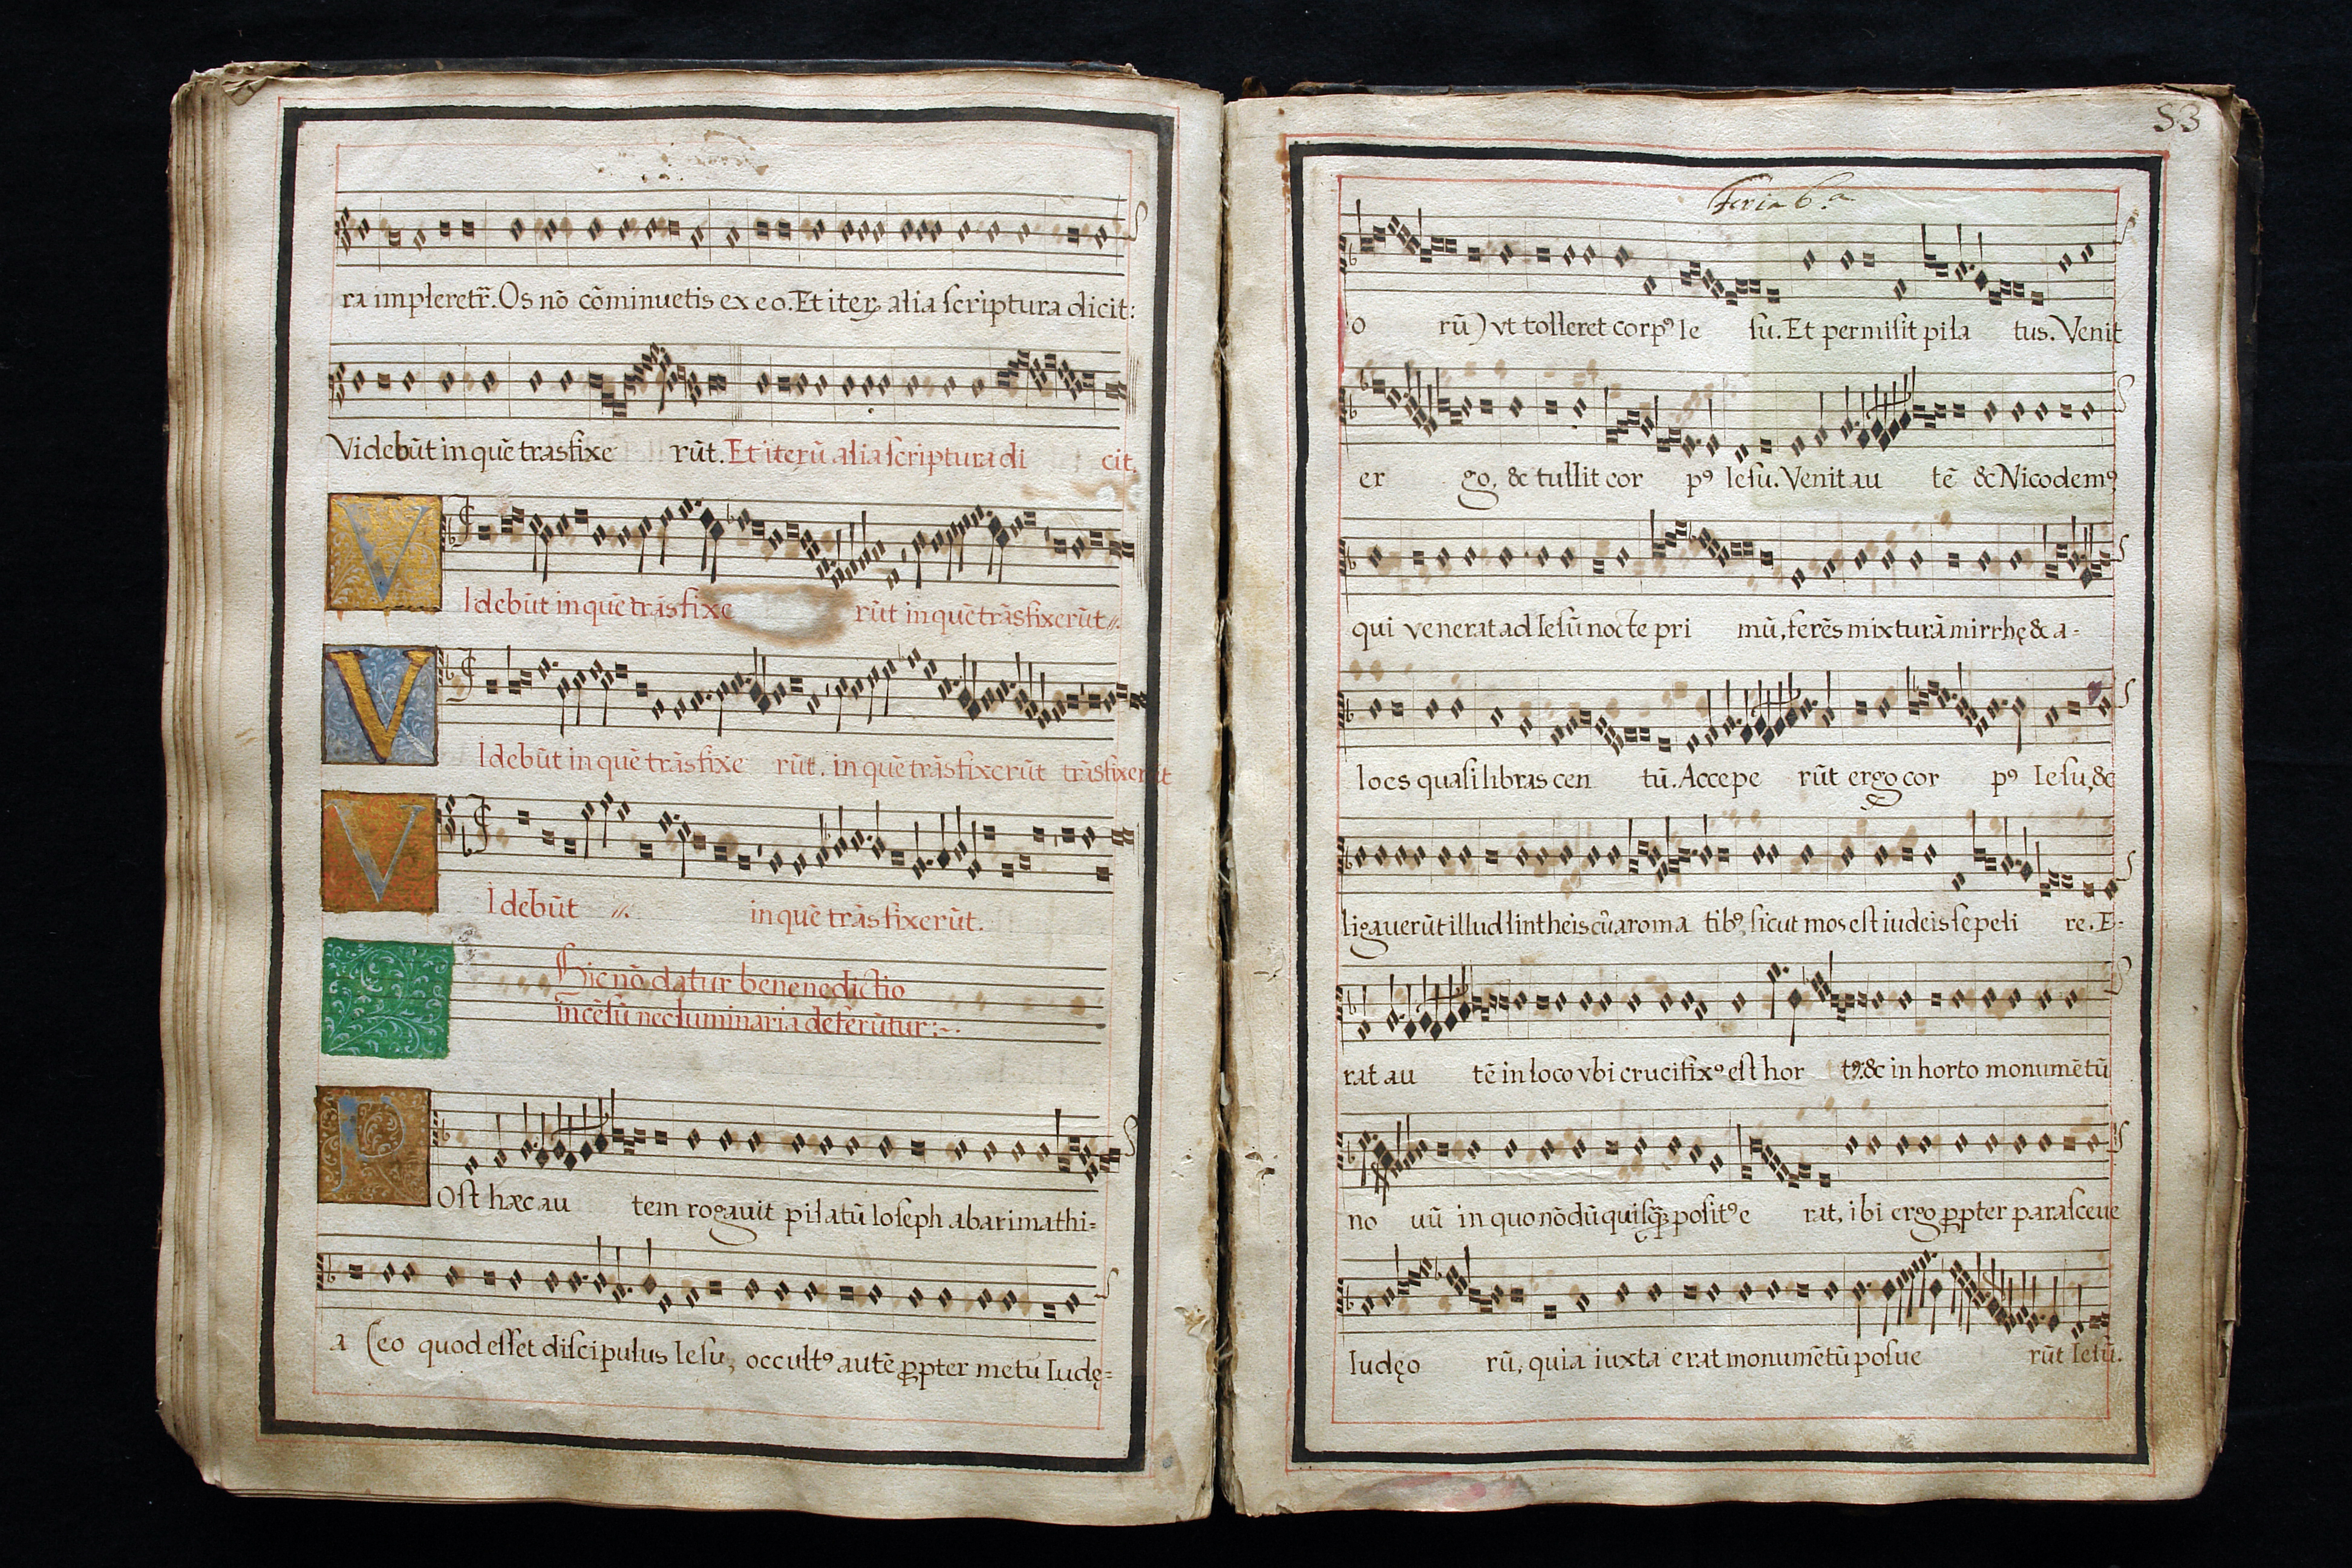 ra impleretr̃. Os nō cōminuetis ex eo. Et iteȝ alia scriptura dicit:
Videbūt in quē trasfixe rūt. Et iterū alia scriptura di cit.
V Idebūt in quē trāsfixe rūt in quē trāsfixerūt //.
V Idebūt in quē trāsfixe rūt. in quē trāsfixerūt trāsfixerūt
V Idebūt //. in quē trāsfixerūt.
Hic nō datur benenedictio
incēsū nec luminaria deferūtur:~.
P Ost hæc au tem rogauit pilatū Ioseph ab arimathi=
a (eo quod esset discipulus Iesu, occultꝰ autē ꝓpter metū Iudę=
53
Feria 6.a
o rū) vt tolleret corpꝰ Ie su. Et permisit pila tus. Venit
er go, & tullit cor pꝰ Iesu. Venit au tē & Nicodemꝰ
qui venerat ad Iesū nocte pri mū, ferēs mixturā mirrhę & a-
loes quasi libras cen tū. Accepe rūt ergo cor pꝰ Iesu, &
ligauerūt illud lintheis cū aroma tibꝰ, sicut mos est iudeis sepeli re. E-
rat au tē in loco vbi crucifixꝰ est hor tꝰ & in horto monumētū
no uū in quo nōdū quisq̃ȝ positꝰ e rat, ibi ergo ꝓpter parasceue
Iudęo rū, quia iuxta erat monumētū posue rūt Iesū.